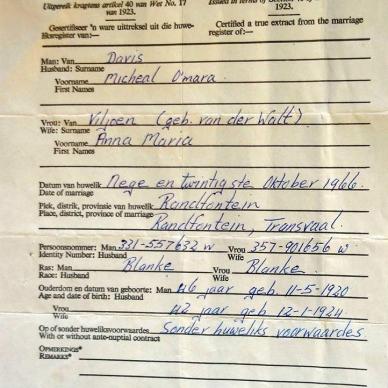 Uitgereik kragtens artikel 40 van Wet No. 17
van 1923.
1923.
Gesertifiseer 'n ware uittreksel uit die huwe-
liksregister van:—
Certified a true extract from the marriage
register of:—
Man: Van Davis
Husband: Surname
Voorname Micheal O'mara
First Names
Vrou: Van Viljoen (geb. van der Walt)
Wife: Surname
Voorname Anna Maria
First Names
Datum van huwelik Nege en twintigste Oktober 1966
Date of marriage
Plek, distrik, provinsie van huwelik Randfontein
Place, district, province of marriage
Randfontein, Transvaal.
Persoonsnommer: Man 331-557632 W Vrou 357-901656 W
Identity Number: Husband Wife
Ras: Man Blanke Vrou Blanke
Race: Husband Wife
Ouderdom en datum van geboorte: Man 46 jaar geb. 11-5-1920
Age and date of birth: Husband
Vrou 42 jaar geb. 12-1-1924
Wife
Op of sonder huweliksvoorwaardes Sonder huweliks voorwaardes
With or without ante-nuptial contract
OPMERKINGS*
REMARKS*